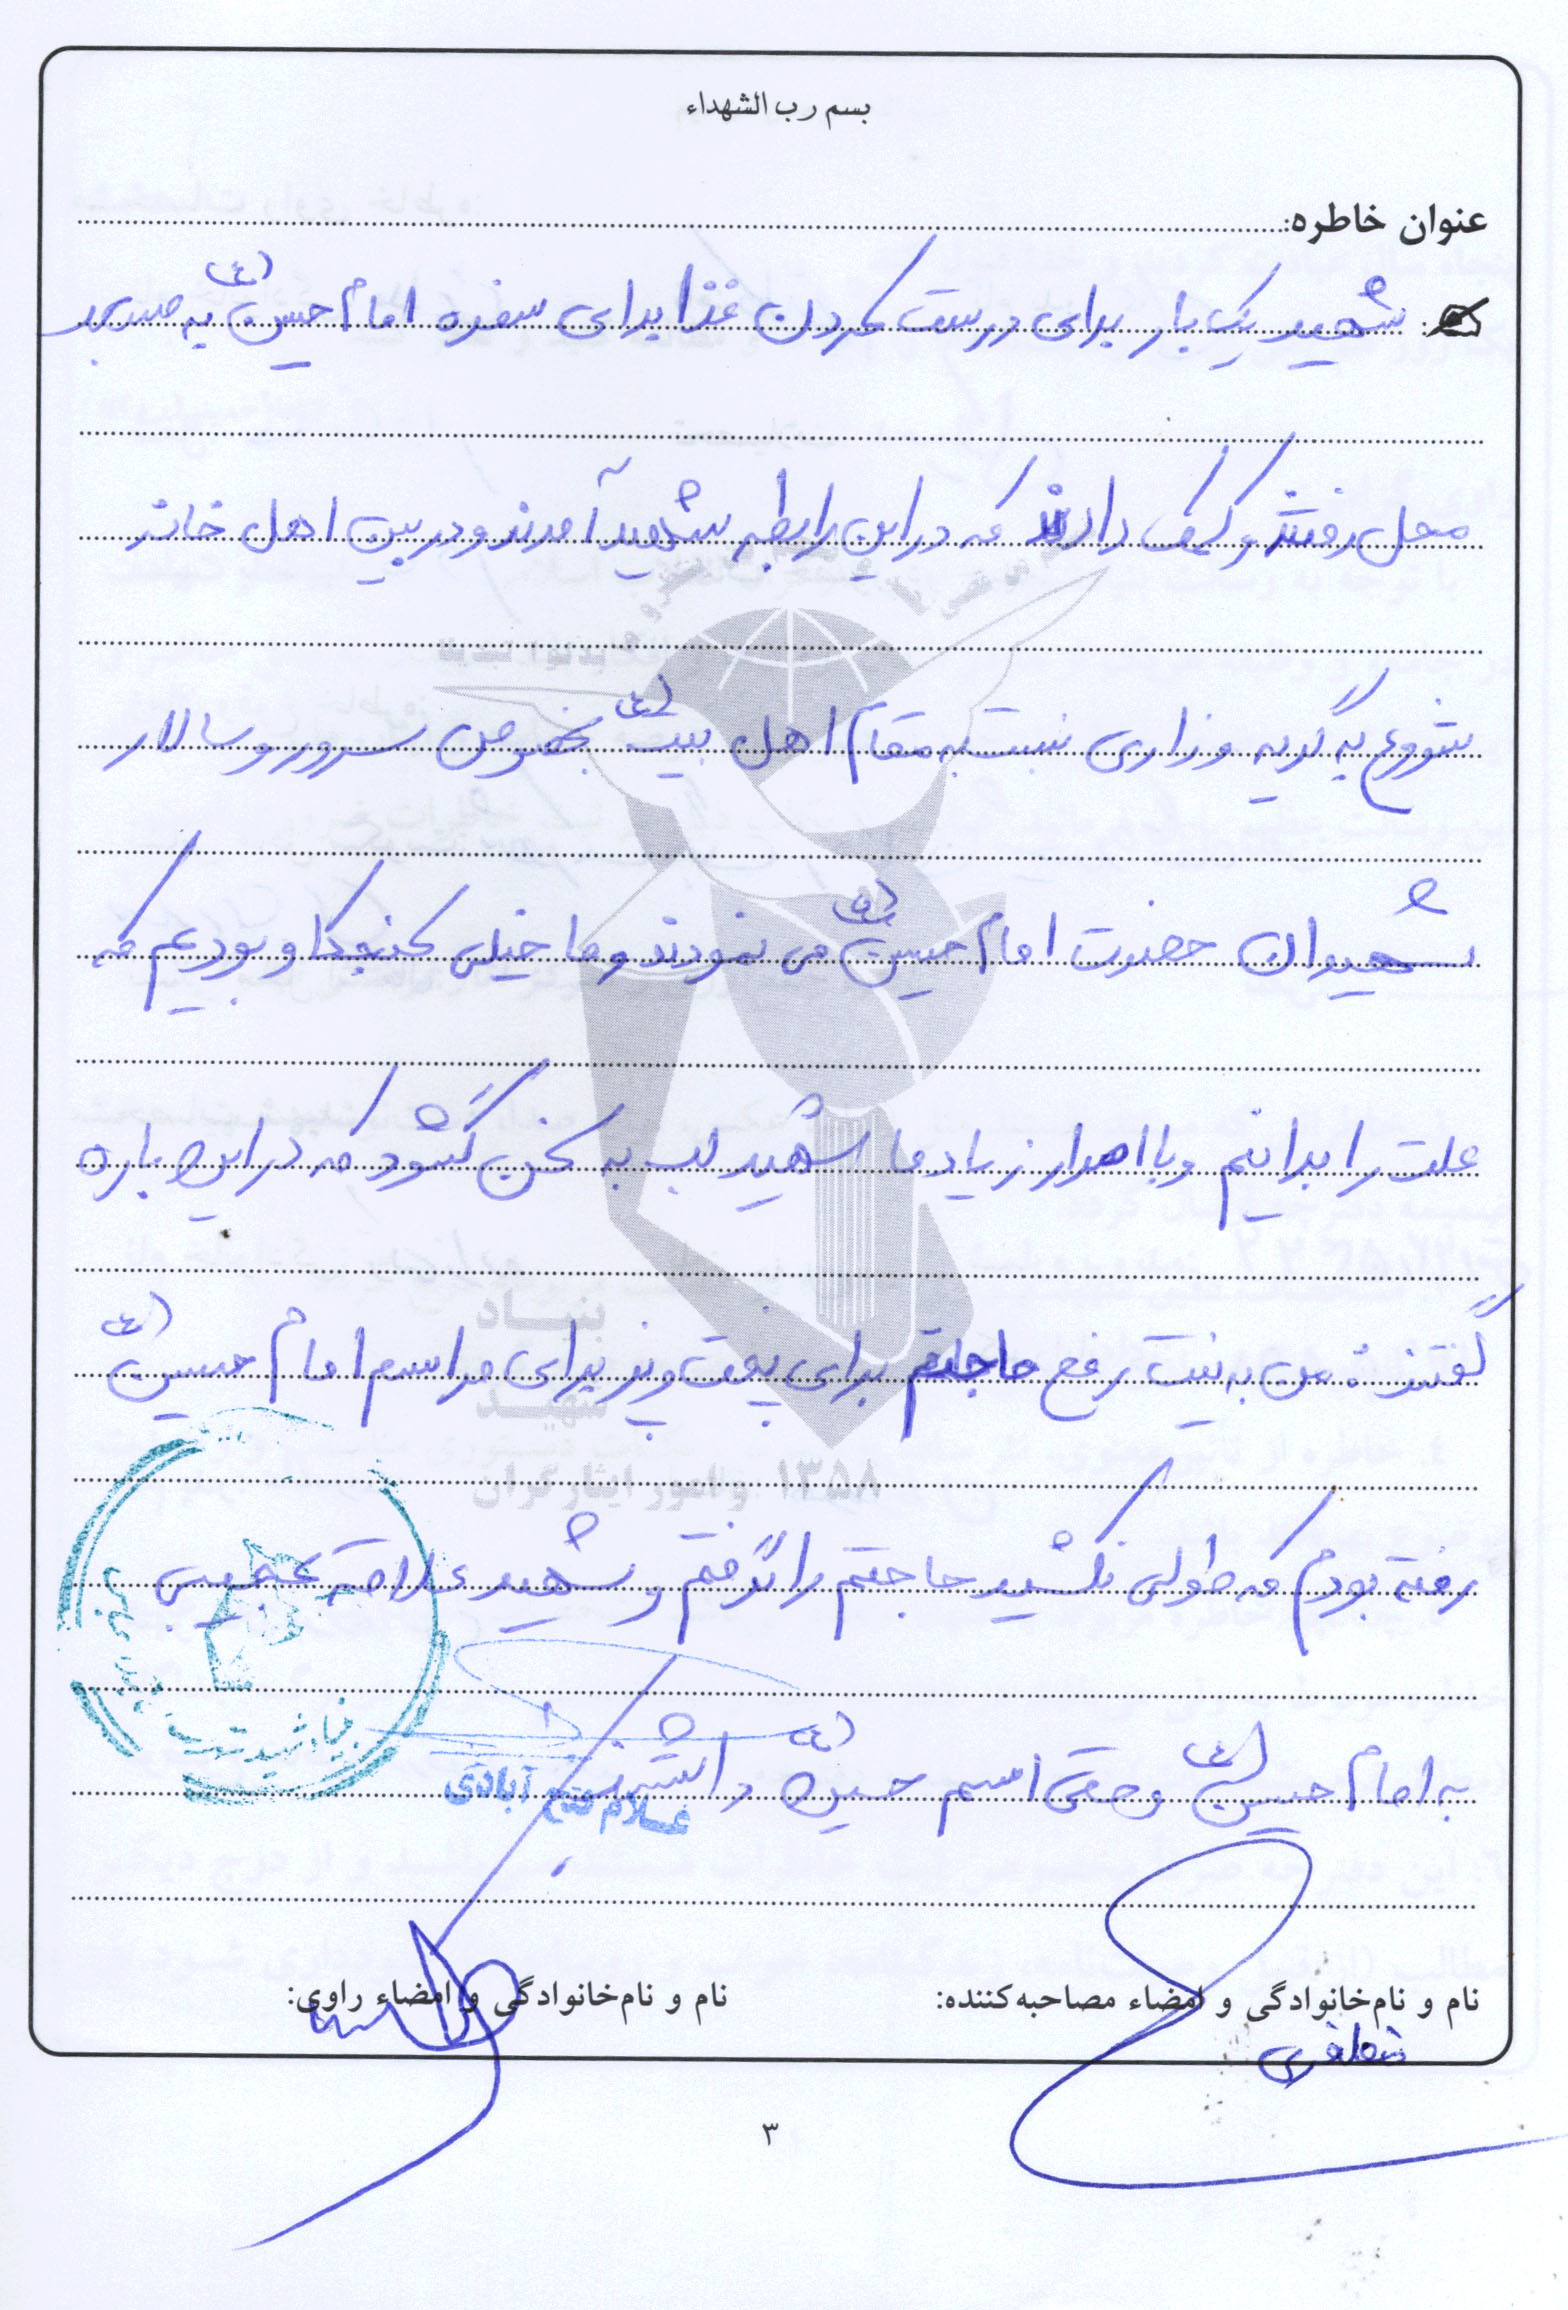 بسم رب الشهداء
عنوان خاطره:
شهید یک بار برای درست کردن غذا برای سفره امام حسین (ع) به مسجد
محل رفتند و کمک دادند که در این رابطه شهید آمدند و در بین اهل خانه
شروع به گریه و زاری نسبت به مقام اهل بیت (ع) بخصوص سرور و سالار
شهیدان حضرت امام حسین (ع) می نمودند و ما خیلی کنجکاو بودیم که
علت را بدانیم و با اصرار زیاد ما شهید لب به سخن گشود که در این باره
گفتند: من به نیت رفع حاجتم برای پخت و پز برای مراسم امام حسین (ع)
رفته بودم که طولی نکشید حاجتم را گرفتم و شهید علاقه عجیبی
به امام حسین (ع) و حتی اسم حسین (ع) داشتند.
غلام فتح آبادی
بنیاد شهید
بنیاد
شهید
و امور ایثارگران ۱۳۵۸
نام و نام‌خانوادگی و امضاء مصاحبه‌کننده:
نام و نام‌خانوادگی و امضاء راوی:
۳